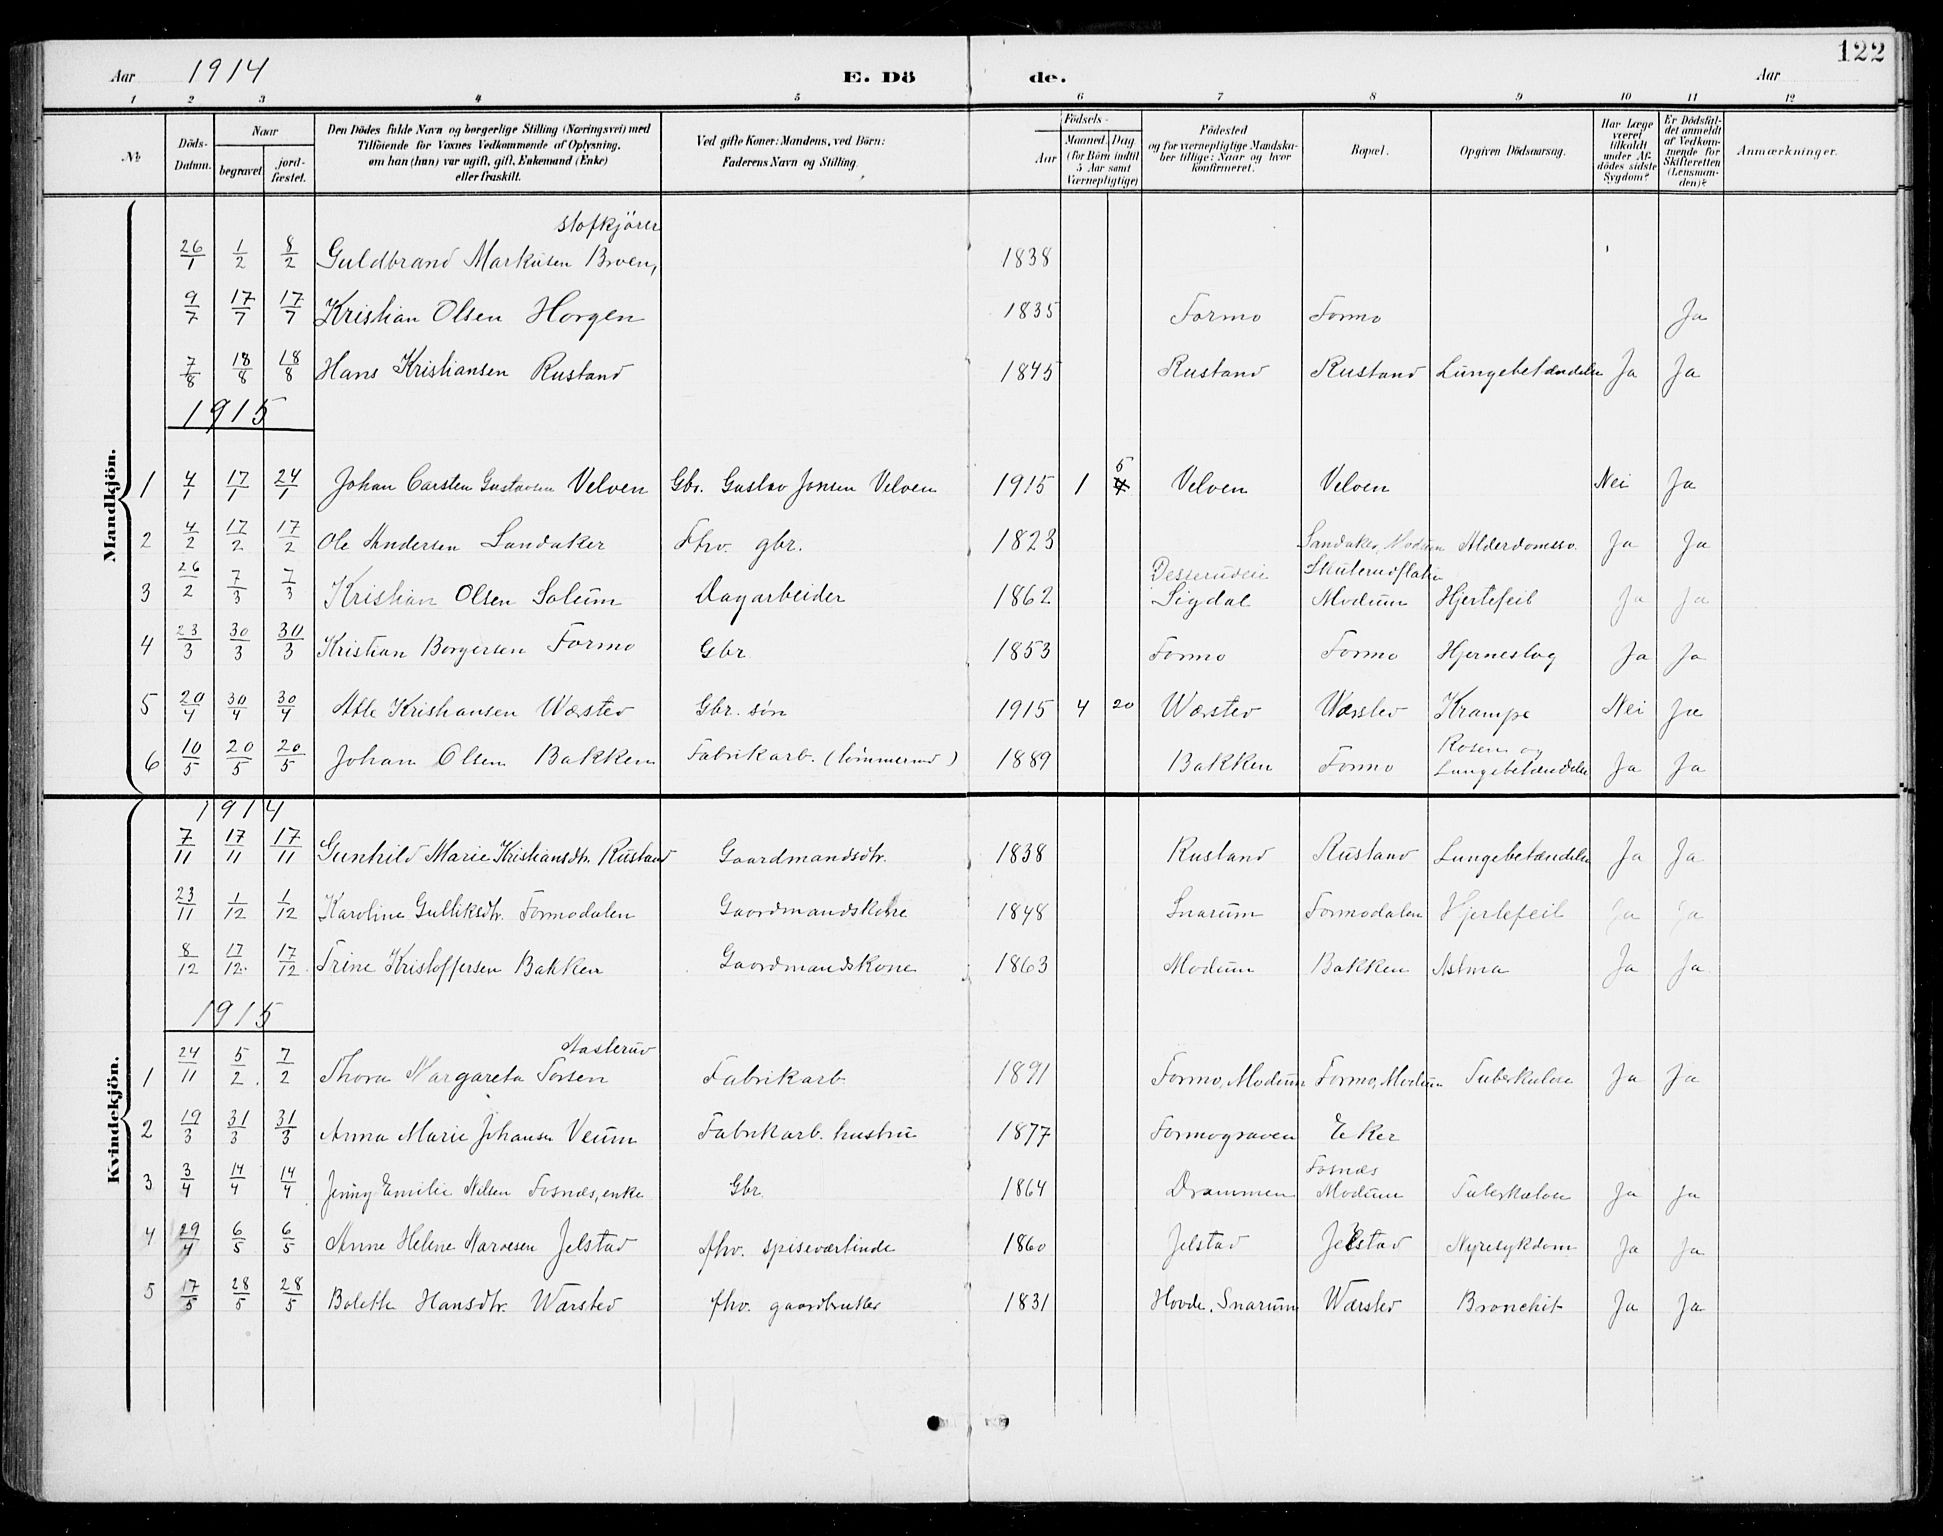 122
Aar 1914 E. Dö de. Aar
1 2 3 4 5 6 7 8 9 10 11 12
№ Döds-Datum. Naar begravet jord-fæstet. Den Dödes fulde Navn og borgerlige Stilling (Næringsvei) med Tilföiende for Voxnes Vedkommende af Oplysning, om han (hun) var ugift, gift, Enkemand (Enke) eller fraskilt. Ved gifte Koner: Mandens, ved Börn: Faderens Navn og Stilling. Födsels- Aar Maaned Dag (for Börn indtil 5 Aar samt Værnepligtige) Födested og for værnepligtige Mandskaber tillige: Naar og hvor konfirmeret. Bopæl. Opgiven Dödsaarsag. Har Læge været tilkaldt under Afdödes sidste Sygdom? Er Dödsfaldet anmeldt af Vedkommende for Skifteretten (Lensmanden)? Anmærkninger.
Mandkjön.
stofkjörer
26/1 1/2 8/2 Guldbrand Markusen Broen, 1838
9/7 17/7 17/7 Kristian Olsen Horgen 1835 Formo Formo Ja
7/8 18/8 18/8 Hans Kristiansen Rustand 1845 Rustand Rustand Lungebetændelse Ja Ja
1915
1 4/1 17/1 24/1 Johan Carsten Gustavsen Velven Gbr. Gustav Jonsen Velven 1915 1 5 4 Velven Velven Nei Ja
2 4/2 17/2 17/2 Ole Andersen Sandaker Fhv. gbr. 1823 Sandaker, Modum Alderdomssv. Ja Ja
3 26/2 7/3 7/3 Kristian Olsen Solum Dagarbeider 1862 Desserudeie Sigdal Skuterudflaten Modum Hjertefeil Ja Ja
4 23/3 30/3 30/3 Kristian Borgersen Formo Gbr. 1853 Formo Formo Hjerneslag Ja Ja
5 20/4 30/4 30/4 Atle Kristiansen Wærsted Gbr. søn 1915 4 20 Wærsted Wærsted Krampe Nei Ja
6 10/5 20/5 20/5 Johan Olsen Bakken Fabrikarb. (tömmerud) 1889 Bakken Formo Rosen og Lungebetændelse Ja Ja
Kvindekjön.
1914
7/11 17/11 17/11 Gunhild Marie Kristiansdtr. Rustand Gaardmandsdtr. 1838 Rustand Rustand Lungebetændelse Ja Ja
23/11 1/12 1/12 Karoline Gulliksdtr. Formodalen Gaardmandskone 1848 Snarum Formodalen Hjertefeil Ja Ja
8/12 17/12. 17/12 Trine Kristoffersen Bakken Gaardmandskone 1863 Modum Bakken Astma Ja Ja
1915
Aasterud
1 24/11 5/2 7/2 Thora Margareta Torsen Fabrikarb. 1891 Formo, Modum Formo, Modum Tuberkulose Ja Ja
2 19/3 31/3 31/3 Anna Marie Johansen Veum Fabrikarb. hustru 1877 Formograven Eker
3 3/4 14/4 14/4 Jenny Emilie Nilsen Fosnæs, enke Gbr. 1864 Drammen Fosnæs Modum Tuberkulose Ja Ja
4 29/4 6/5 6/5 Anne Helene Narvesen Jelstad fhv. spiseværtinde 1860 Jelstad Jelstad Nyresykdom Ja Ja
5 17/5 28/5 28/5 Bolette Hansdtr. Wærsted fhv. gaardbruker 1831 Hovde, Snarum Wærsted Bronchit Ja Ja